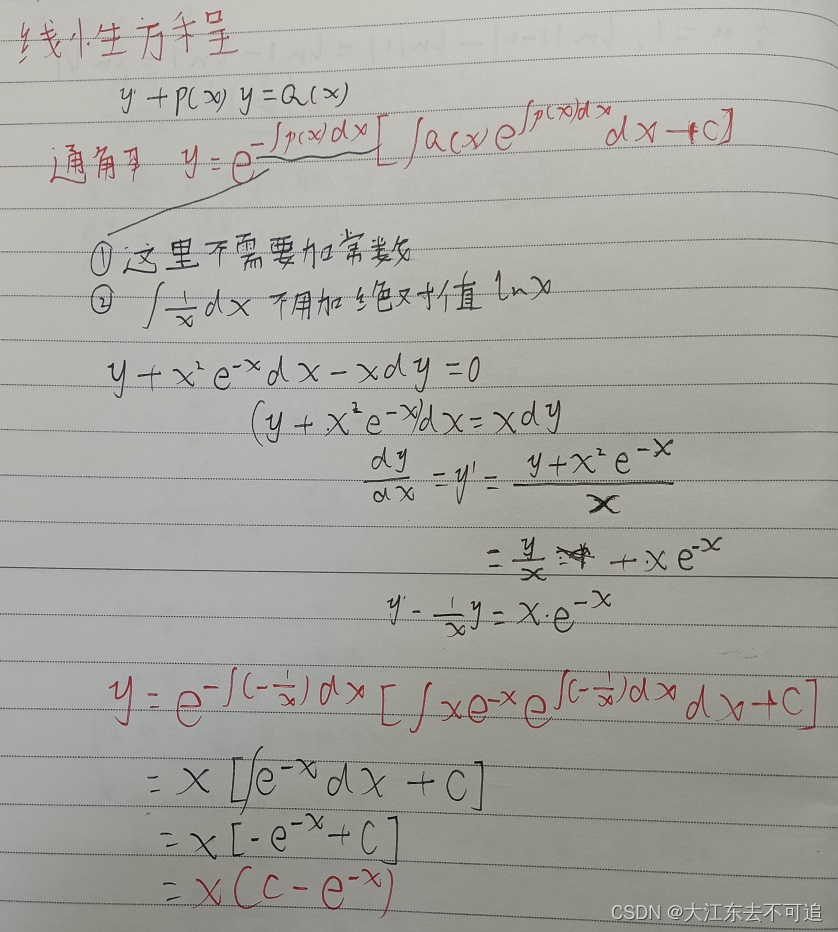 线性方程
y' + p(x) y = Q(x)
通解 y = e^{-∫p(x)dx} [ ∫Q(x) e^{∫p(x)dx} dx + C ]
① 这里不需要加常数
② ∫ 1/x dx 不用加绝对值 ln x
y + x² e^{-x} dx - x dy = 0
(y + x² e^{-x}) dx = x dy
dy/dx = y' = (y + x² e^{-x})/x
= y/x + x e^{-x}
y' - 1/x y = x · e^{-x}
y = e^{-∫(-1/x) dx} [ ∫x e^{-x} e^{∫(-1/x) dx} dx + C ]
= x [ ∫e^{-x} dx + C ]
= x [ -e^{-x} + C ]
= x (C - e^{-x})
CSDN @大江东去不可追